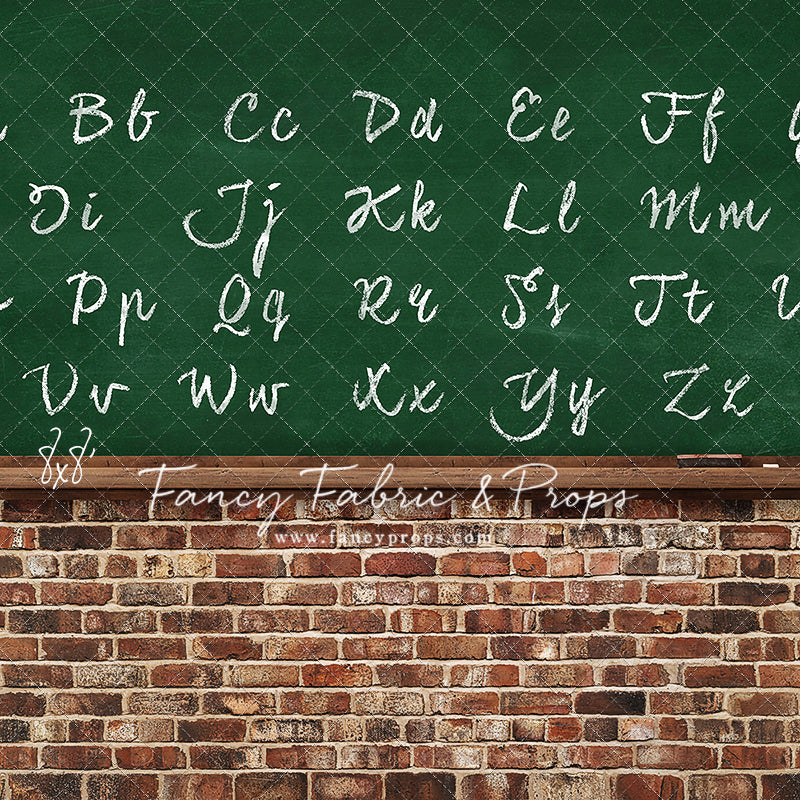 Bb Cc Dd Ee Ff
Ii Jj Kk Ll Mm
Pp Qq Rr Ss Tt
Vv Ww Xx Yy Zz
8x8'
Fancy Fabric & Props
www.fancyprops.com